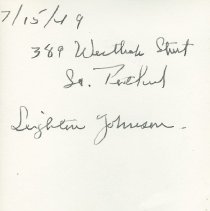 7/15/49
389 Westbrook Street
So. Portland
Leighton Johnson.